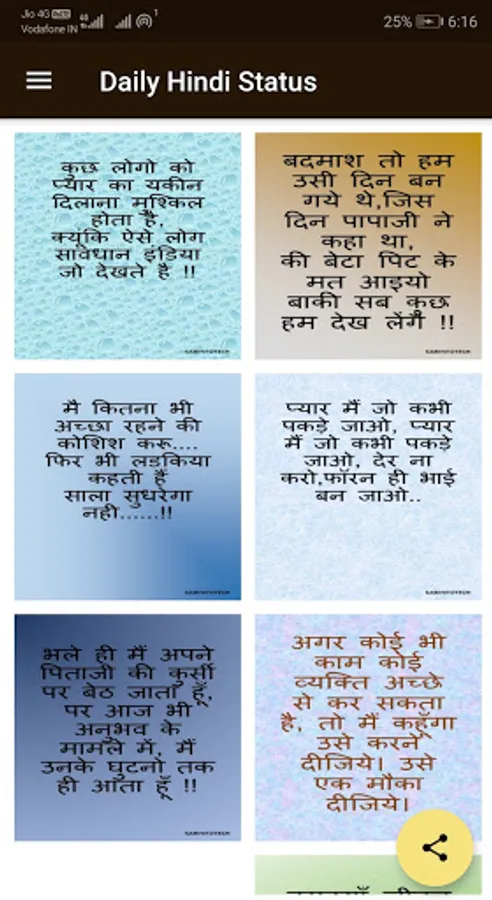 Jio 4G VoLTE
Vodafone IN
25%
6:16
Daily Hindi Status
कुछ लोगो को
प्यार का यकीन
दिलाना मुश्किल
होता है,
क्यूंकि ऐसे लोग
सावधान इंडिया
जो देखते है !!
बदमाश तो हम
उसी दिन बन
गये थे,जिस
दिन पापाजी ने
कहा था,
की बेटा पिट के
मत आइयो
बाकी सब कुछ
हम देख लेंगें !!
मै कितना भी
अच्छा रहने की
कोशिश करू....
फिर भी लडकिया
कहती हैं
साला सुधरेगा
नही.......!!
प्यार मैं जो कभी
पकड़े जाओ, प्यार
मैं जो कभी पकड़े
जाओ, देर ना
करो,फॉरन ही भाई
बन जाओ..
भले ही मैं अपने
पिताजी की कुर्सी
पर बेठ जाता हूँ,
पर आज भी
अनुभव के
मामले में, मैं
उनके घुटनो तक
ही आता हूँ !!
अगर कोई भी
काम कोई
व्यक्ति अच्छे
से कर सकता
है, तो मैं कहूँगा
उसे करने
दीजिये। उसे
एक मौका
दीजिये।